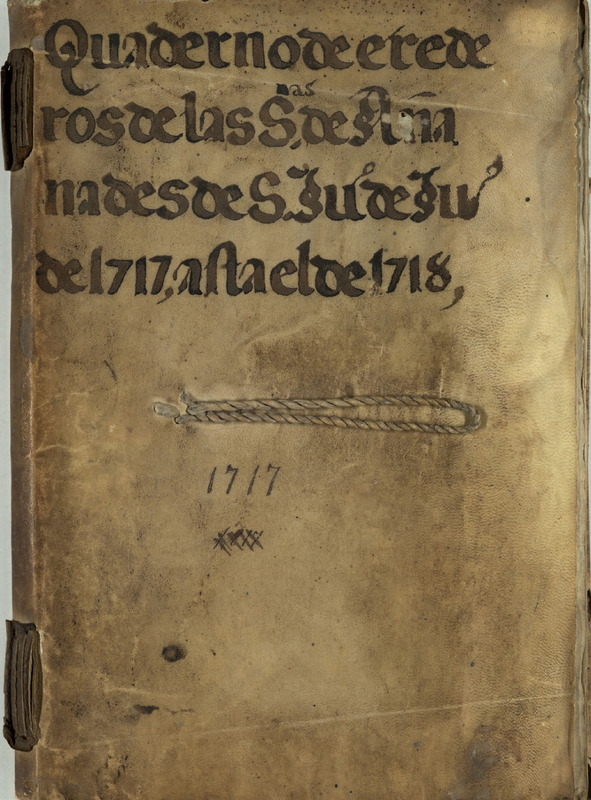 Quaderno de erede
ros de las S.nas de Aña
na desde S. Juº de Juº
de 1717, asta el de 1718,
1717